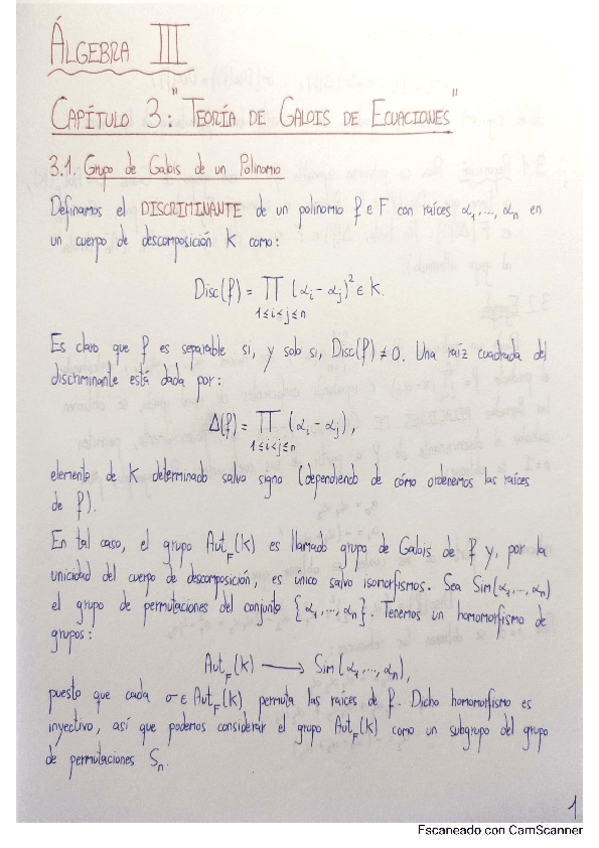 ÁLGEBRA III
CAPÍTULO 3: "TEORÍA DE GALOIS DE ECUACIONES"
3.1. Grupo de Galois de un Polinomio
Definamos el DISCRIMINANTE de un polinomio f ∈ F con raíces α₁,…,αₙ en
un cuerpo de descomposición K como:
Disc(f) = ∏ (αᵢ - αⱼ)² ∈ K.
1≤i<j≤n
Es claro que f es separable si, y solo si, Disc(f) ≠ 0. Una raíz cuadrada del
discriminante está dada por:
Δ(f) = ∏ (αᵢ - αⱼ),
1≤i<j≤n
elemento de K determinado salvo signo (dependiendo de cómo ordenemos las raíces
de f).
En tal caso, el grupo Aut_F(K) es llamado grupo de Galois de f y, por la
unicidad del cuerpo de descomposición, es único salvo isomorfismos. Sea Sim(α₁,…,αₙ)
el grupo de permutaciones del conjunto {α₁,…,αₙ}. Tenemos un homomorfismo de
grupos:
Aut_F(K) ⟶ Sim(α₁,…,αₙ),
puesto que cada σ ∈ Aut_F(K) permuta las raíces de f. Dicho homomorfismo es
inyectivo, así que podemos considerar el grupo Aut_F(K) como un subgrupo del grupo
de permutaciones Sₙ.
1
Escaneado con CamScanner